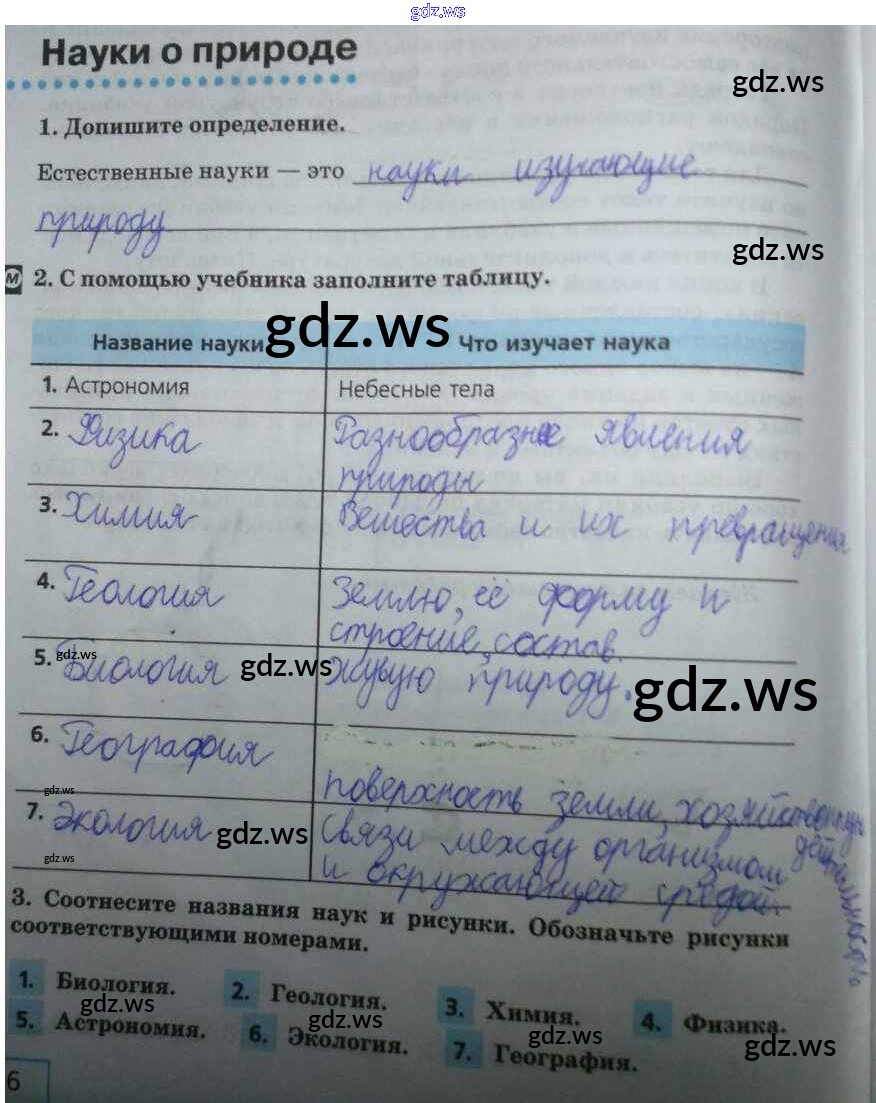 gdz.ws
Науки о природе
gdz.ws
1. Допишите определение.
Естественные науки — это науки изучающие
природу
gdz.ws
М 2. С помощью учебника заполните таблицу.
gdz.ws
Название науки Что изучает наука
1. Астрономия Небесные тела
2. Физика Разнообразные явления
природы
3. Химия Вещества и их превращения
4. Геология Землю, её форму и
строение, состав.
5. Биология Живую природу.
gdz.ws gdz.ws gdz.ws
6. География
поверхность земли, хозяйственную
деятельность
gdz.ws
7. Экология Связи между организмом
и окружающей средой.
gdz.ws
gdz.ws
3. Соотнесите названия наук и рисунки. Обозначьте рисунки
соответствующими номерами.
1. Биология. 2. Геология. 3. Химия. 4. Физика.
gdz.ws gdz.ws gdz.ws gdz.ws
5. Астрономия. 6. Экология. 7. География.
6